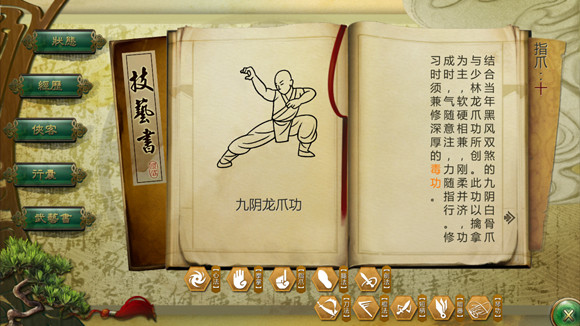 狀態
經歷
俠客
行囊
武藝書
技藝書
九阴龙爪功
指爪：十
结合当年黑风双煞的九阴白骨爪
与少林龙爪功所创。此功以擒拿
为主，软硬相兼，刚柔并济，功
成时，气随意注，力随指行。修
习时须兼修深厚的毒功。